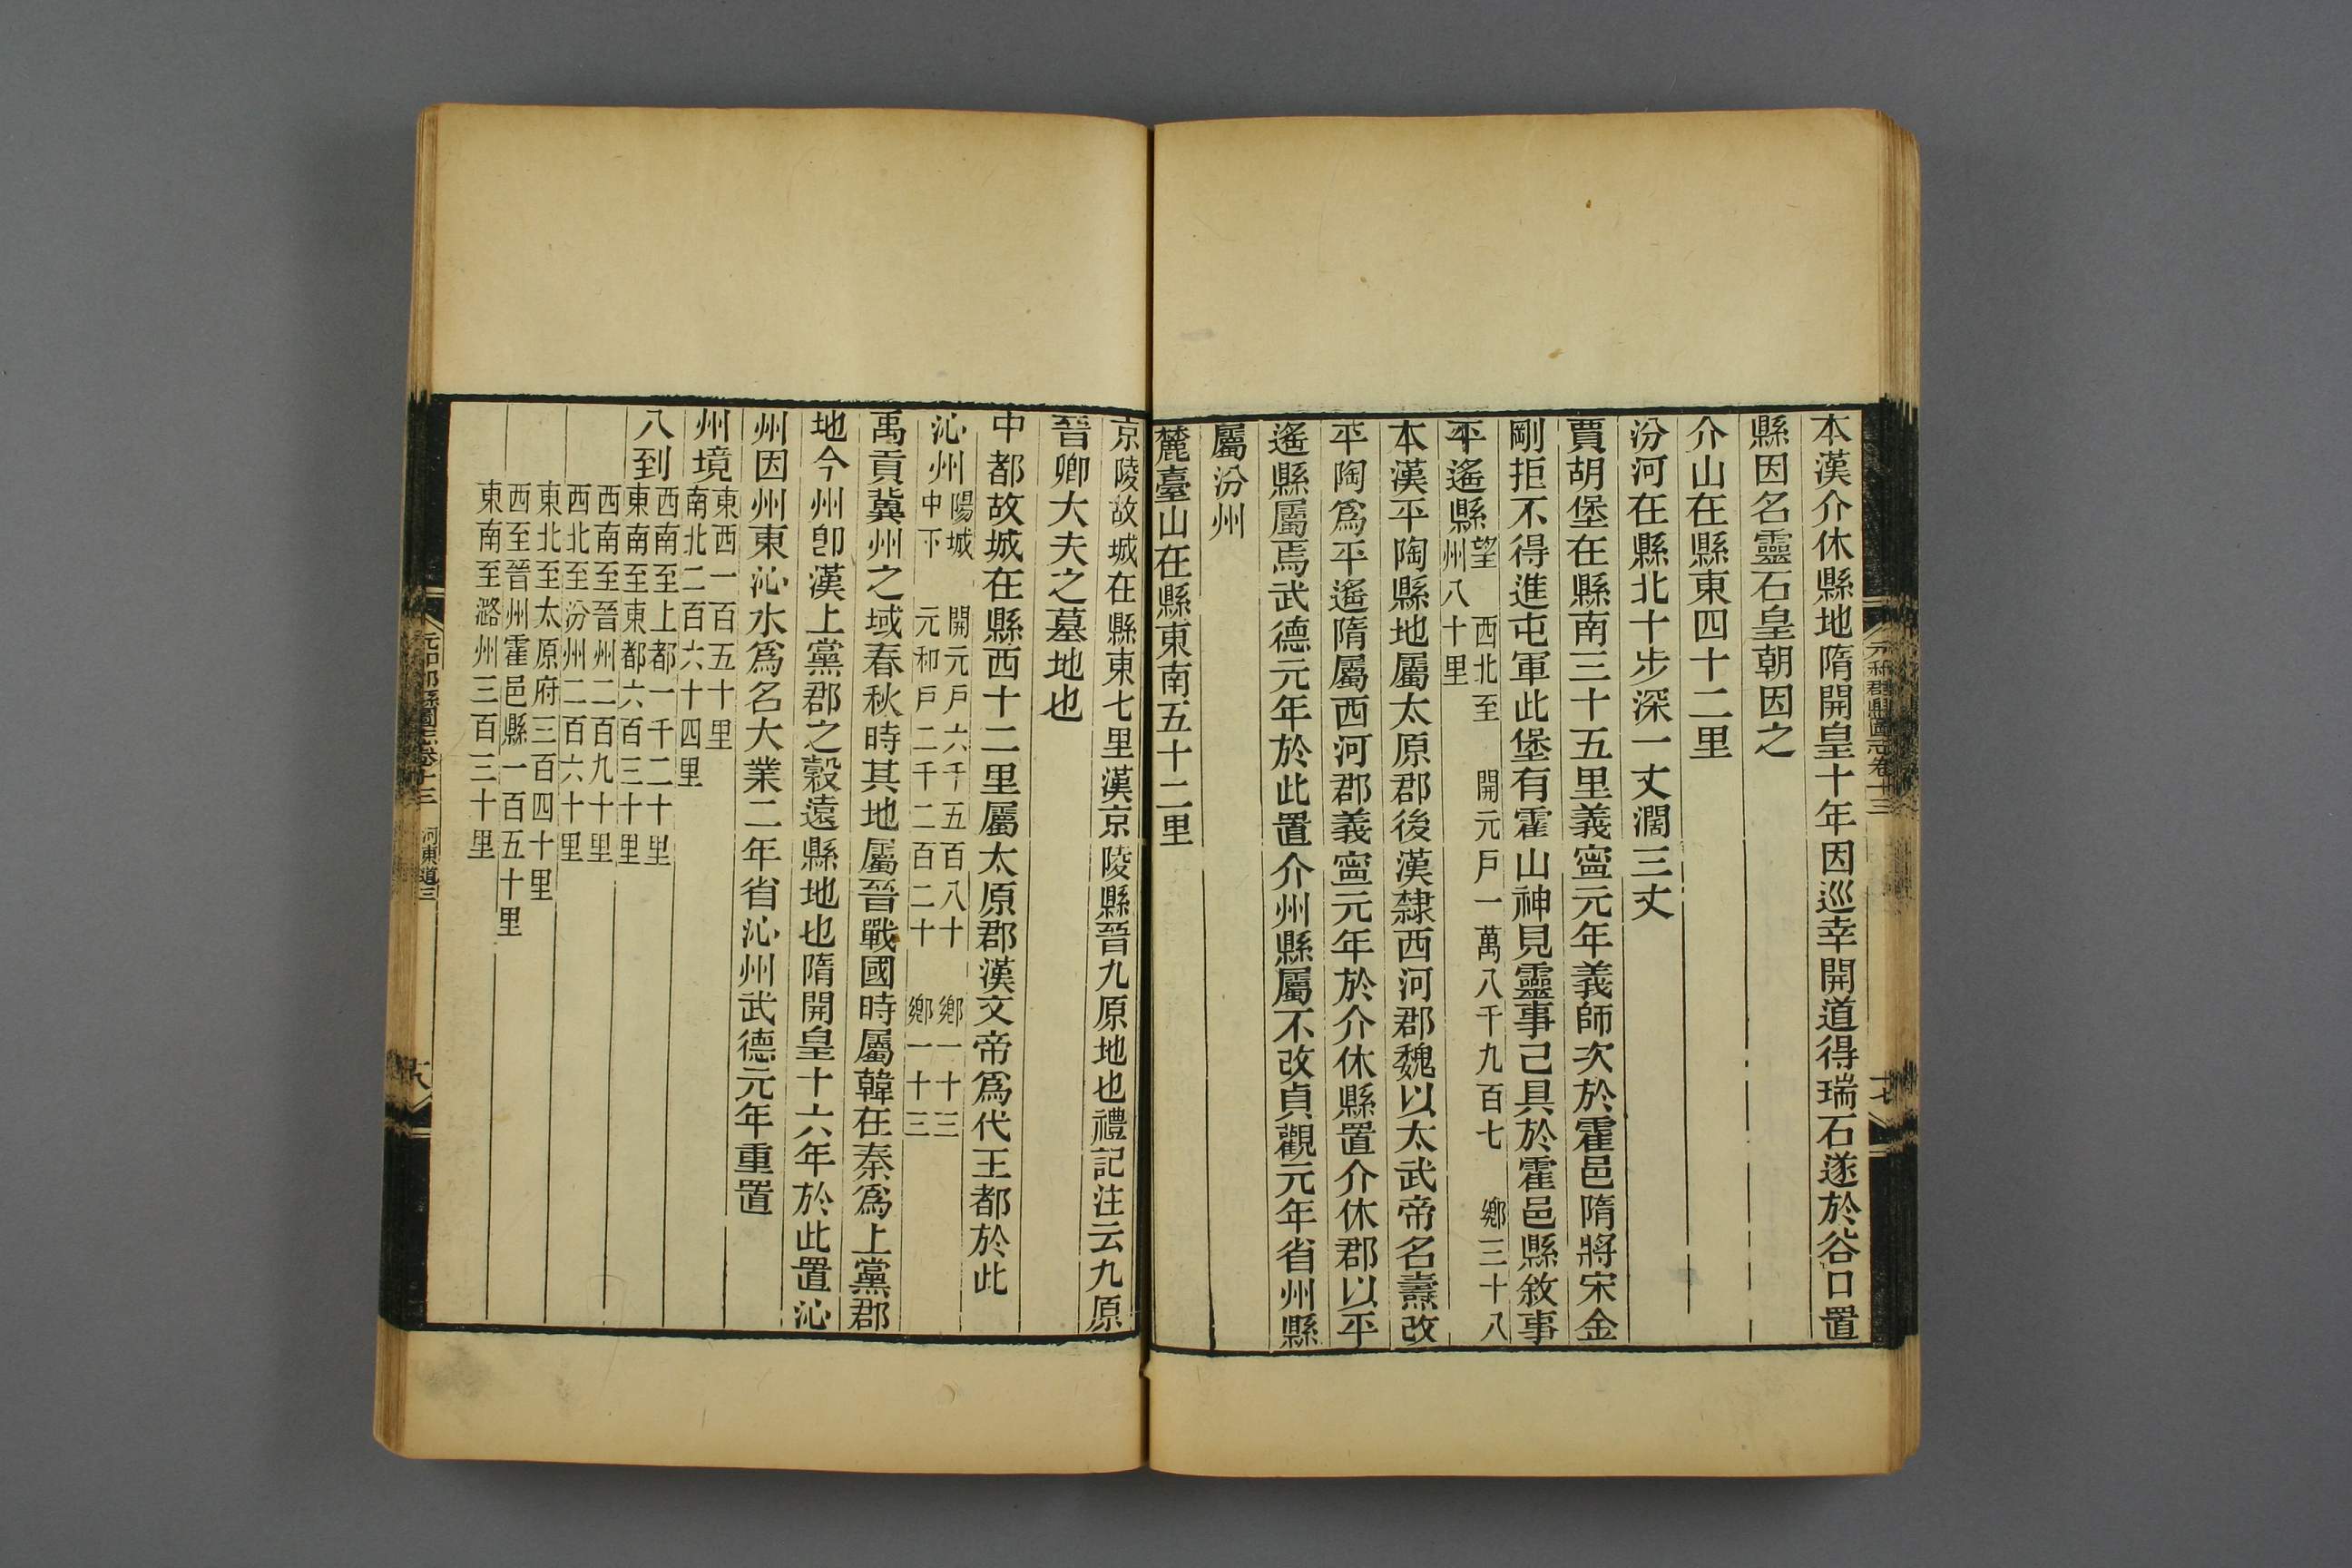 本漢介休縣地隋開皇十年因巡幸開道得瑞石遂於谷口置
縣因名靈石皇朝因之
介山在縣東四十二里
汾河在縣北十步深一丈濶三丈
賈胡堡在縣南三十五里義寧元年義師次於霍邑隋將宋金
剛拒不得進屯軍此堡有霍山神見靈事己具於霍邑縣敘事
平遙縣望 西北至 開元戶一萬八千九百七 鄉三十八
州八十里
本漢平陶縣地屬太原郡後漢隸西河郡魏以太武帝名燾改
平陶爲平遙隋屬西河郡義寧元年於介休縣置介休郡以平
遙縣屬焉武德元年於此置介州縣屬不改貞觀元年省州縣
屬汾州
麓臺山在縣東南五十二里
元和郡縣圖志卷十三
十七
京陵故城在縣東七里漢京陵縣晉九原地也禮記注云九原
晉卿大夫之墓地也
中都故城在縣西十二里屬太原郡漢文帝爲代王都於此
沁州 陽城 開元戶六千五百八十 鄉一十三
中下 元和戶二千二百二十 鄉一十三
禹貢冀州之域春秋時其地屬晉戰國時屬韓在秦爲上黨郡
地今州卽漢上黨郡之穀遠縣地也隋開皇十六年於此置沁
州因州東沁水爲名大業二年省沁州武德元年重置
州境 東西一百五十里
南北二百六十四里
八到 西南至上都一千二十里
東南至東都六百三十里
西南至晉州二百九十里
西北至汾州二百六十里
東北至太原府三百四十里
西至晉州霍邑縣一百五十里
東南至潞州三百三十里
元和郡縣圖志卷十三 河東道三
十八